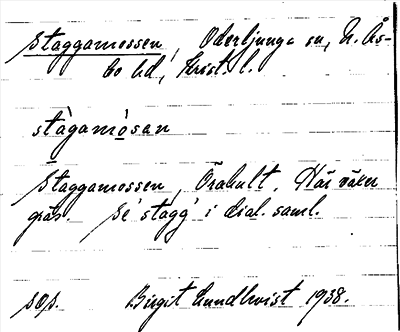 Staggamossen, Oderljunga sn, N. Ås-
bo hd, Krist. l.
stàgamòsan
Staggamossen, Örahult. Här växer
gräs. Se 'stagg' i dial. saml.
sop. Birgit Lundkvist 1938.